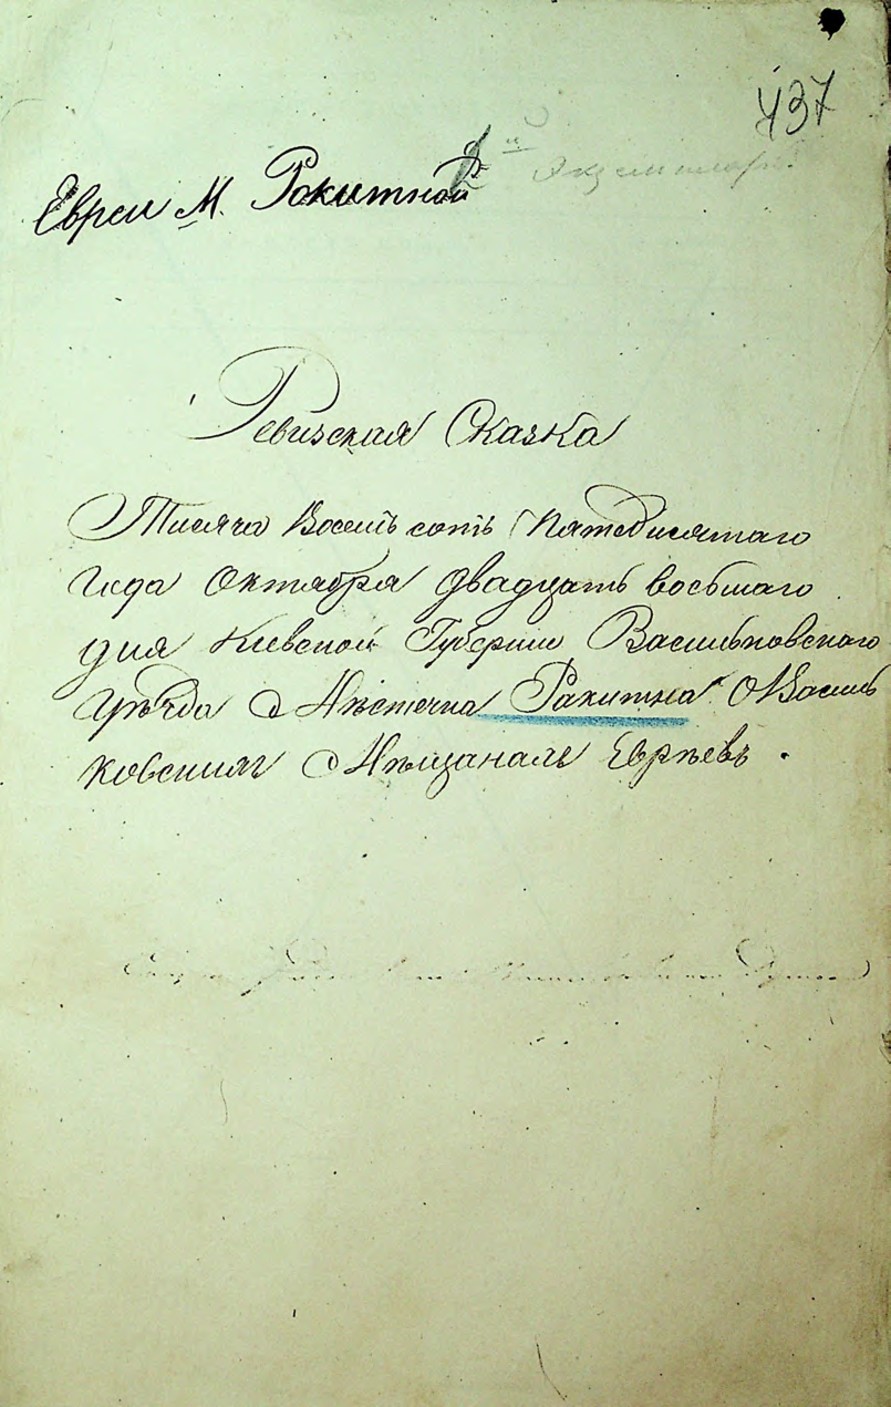 437
Экземпляръ.
Евреи М. Рокитной
Ревизская Сказка
Тисяча Восемъ сотъ Пятдисятаго
Года Октября двадцать восьмаго
дня Киевской Губернии Васильковскаго
Уѣзда Мѣстечка Ракитна О Василь
ковскихъ Мѣщанахъ Евреѣвъ.